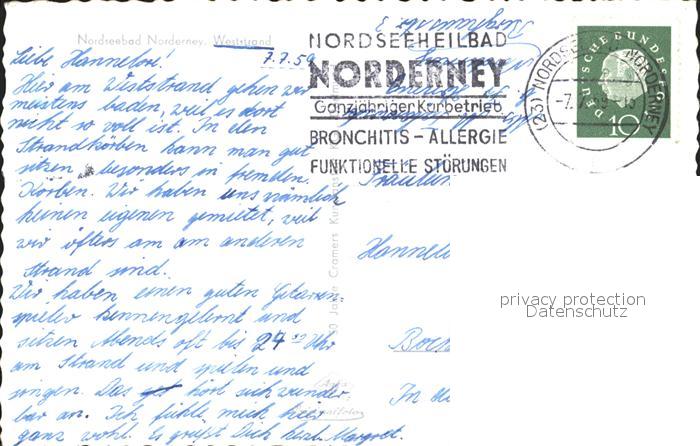 Nordseebad Norderney. Weststrand
Liebe Hannelore! 7.7.59
Hier am Weststrand gehen wir
meistens baden, weil es dort
nicht so voll ist. In den
Strandkörben kann man gut
sitzen, besonders in fremden
Körben. Wir haben uns nämlich
keinen eigenen gemietet, weil
wir öfters am am anderen
Strand sind.
Wir haben einen guten Gitarren-
spieler kennengelernt und
sitzen Abends oft bis 24 Uhr
am Strand und spielen und
singen. Das hört sich wunder
bar an. Ich fühle mich hier
ganz wohl. Es grüßt Dich herzl. Margret.
NORDSEEHEILBAD
NORDERNEY
Ganzjähriger Kurbetrieb
BRONCHITIS - ALLERGIE
FUNKTIONELLE STÖRUNGEN
(23) NORDSEE NORDERNEY
-7.7.59
DEUTSCHE BUNDESPOST
10
Cramers Kunst
Fräulein
Hannelo
In
privacy protection
Datenschutz